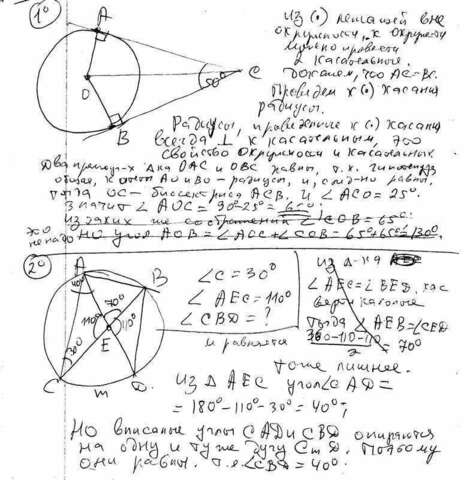 1°
A
O
B
C
50°
Из (·) лежащей вне
окружности, к окружности
можно провести
2 касательные.
Докажем, что AC=BC.
Проведем к (·) касания
радиусы.
Радиусы, проведенные к (·) касания
всегда ⊥ к касательным, это
свойство окружности и касательных.
Два прямоуг-х Δка OAC и OBC равны, т.к. гипотенуза
общая, катеты AO и BO – радиусы, и, равны,
тогда OC – биссектриса ACB. И ∠ACO = 25°.
Значит ∠AOC = 90°-25° = 65°.
Из таких же соображений ∠COB = 65°
это
не надо
но угол AOB = ∠AOC + ∠COB = 65°+65° = 130°.
2°
A
40°
B
70°
110°
110°
E
30°
C
m
D
∠C = 30°
∠AEC = 110°
∠CBD = ?
и равняется
Из
∠AEC = ∠BED, как
вертикальные
Тогда ∠AEB = ∠CED
360-110-110
2
= 70°
Тоже лишнее.
Из Δ AEC угол ∠CAD =
= 180°-110°-30° = 40°;
Но вписаные углы CAD и CBD опираются
на одну и ту же дугу CmD. Поэтому
они равны. т.е. ∠CBD = 40°.